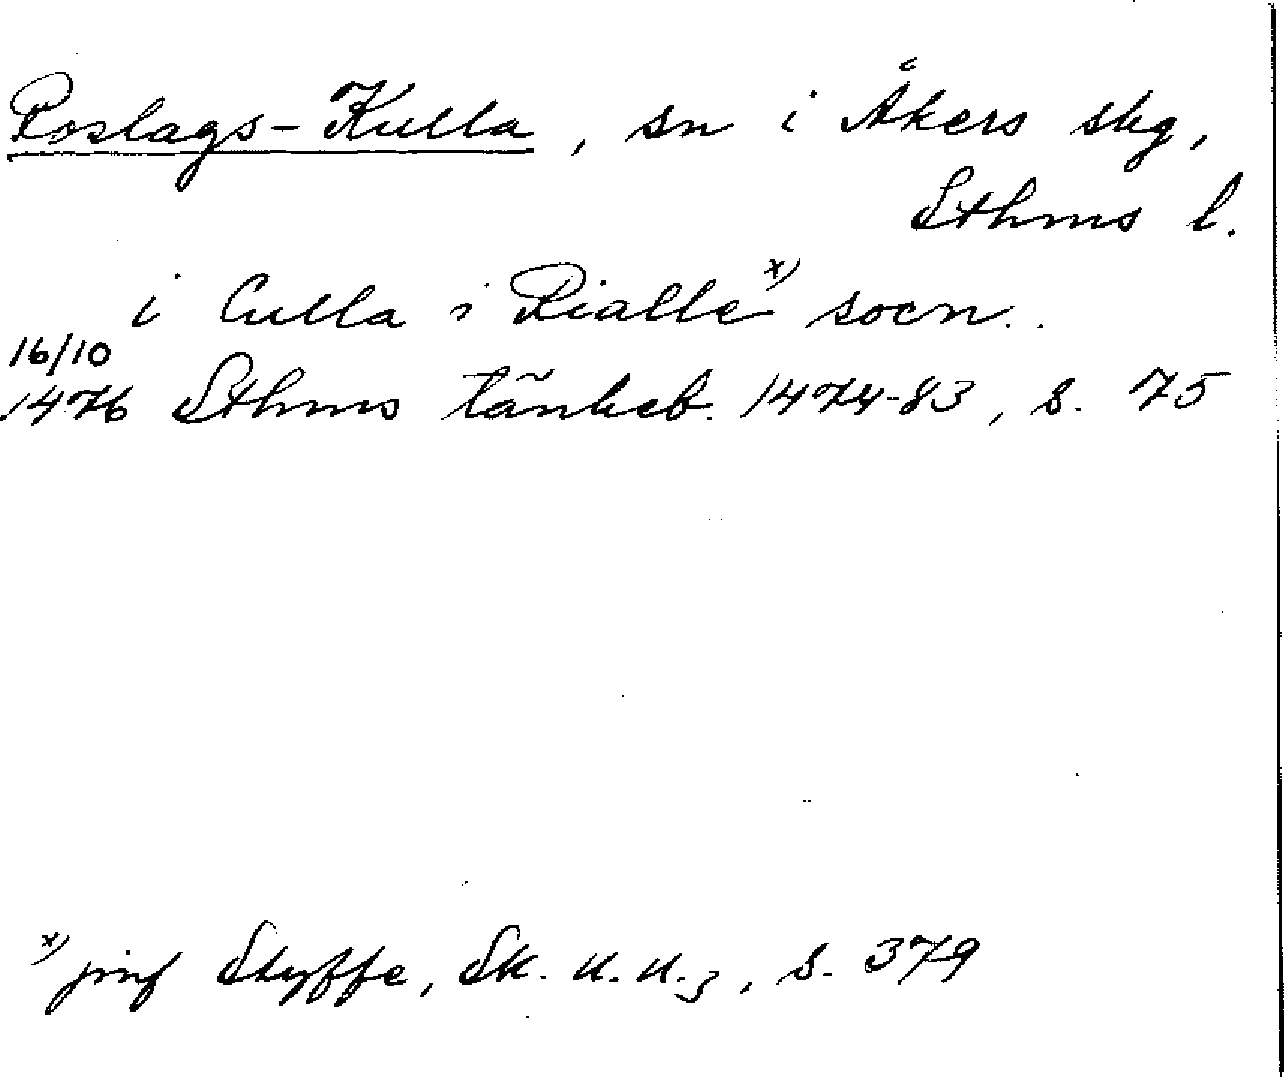 Roslags-Kulla, sn i Åkers skg,
Sthms l.
i Culla i Rialle x) socn..
16/10
1476 Sthms tänkeb. 1474-83, s. 75
x) jmf Styffe, Sk. u. u.3, s. 379